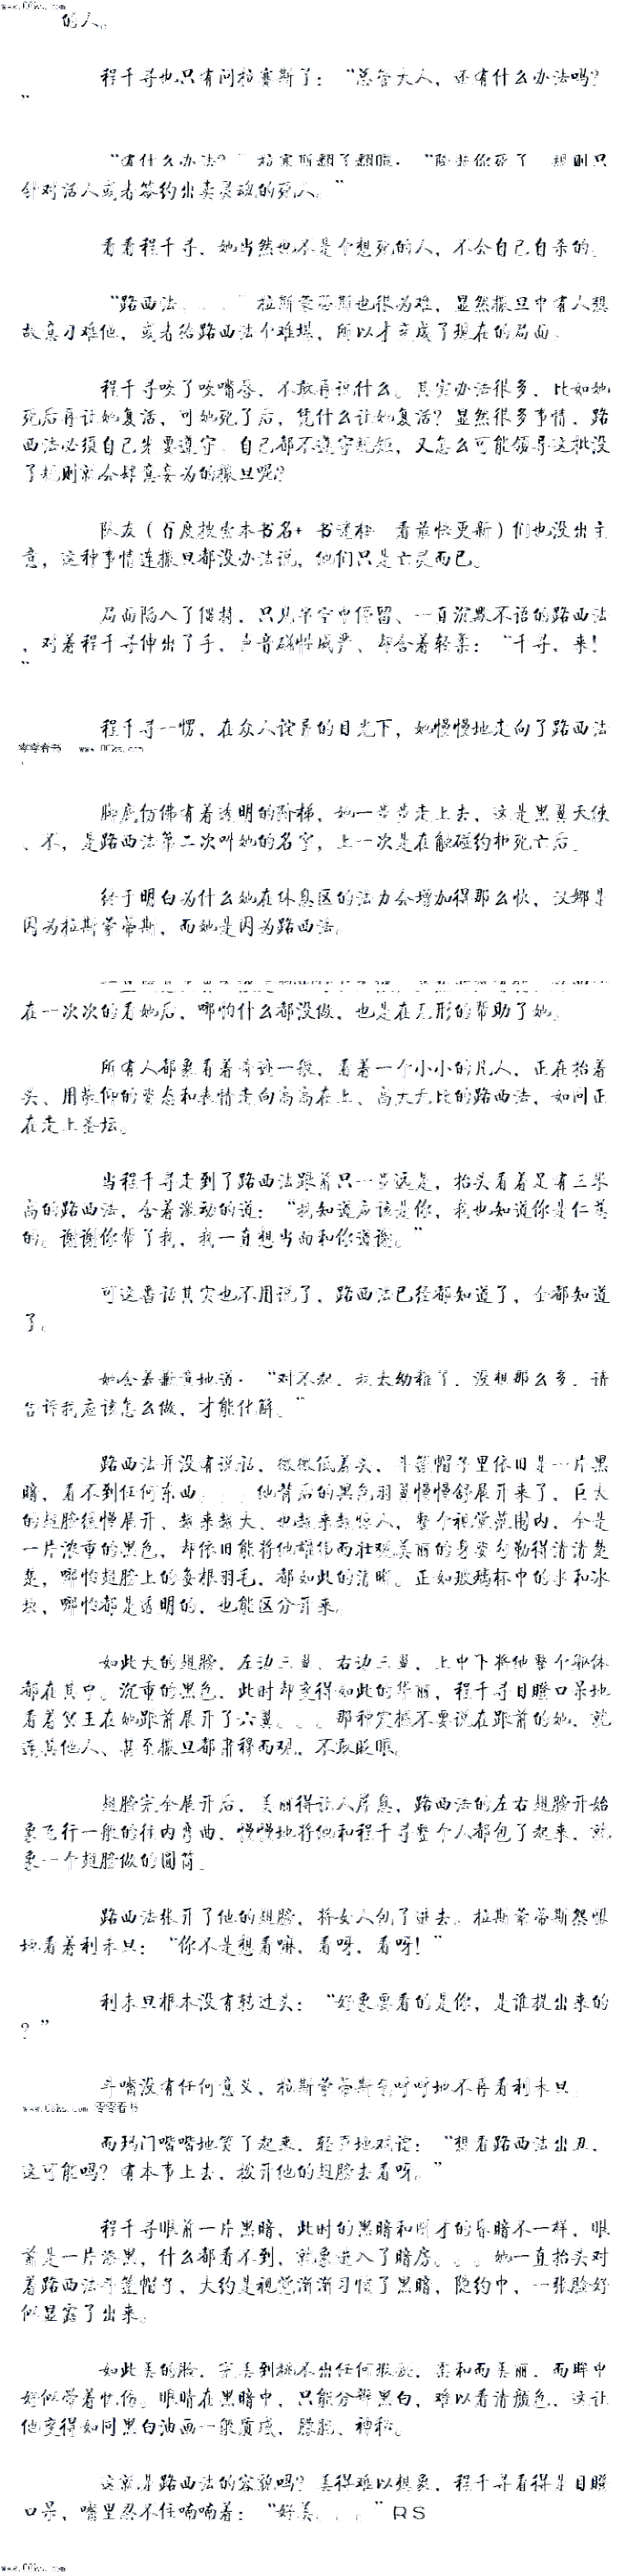 www.00ks.com
的人。
程千寻也只有问拉赛斯了：“总管大人，还有什么办法吗？
”
“有什么办法？”拉赛斯翻了翻眼，“除非你死了，规则只
针对活人或者签约出卖灵魂的死人。”
看着程千寻，她当然也不是个想死的人，不会自己自杀的。
“路西法。。。”拉斯蒙蒂斯也很为难，显然撒旦中有人想
故意刁难他，或者给路西法个难堪，所以才变成了现在的局面。
程千寻咬了咬嘴唇，不敢再说什么。其实办法很多，比如她
死后再让她复活，可她死了后，凭什么让她复活？显然很多事情，路
西法必须自己先要遵守。自己都不遵守规矩，又怎么可能领导这批没
了规则就会肆意妄为的撒旦呢？
队友（百度搜索本书名+ 书 看最快更新）们也没出主
意，这种事情连撒旦都没办法说，他们只是亡灵而已。
局面陷入了僵持，只见半空中停留、一直沉默不语的路西法
，对着程千寻伸出了手，声音磁性威严、却含着轻柔：“千寻，来！
”
程千寻一愣，在众人诧异的目光下，她慢慢地走向了路西法
零零看书 www.00ks.com
。
脚底仿佛有着透明的阶梯，她一步步走上去，这是黑翼天使
、不，是路西法第二次叫她的名字，上一次是在触碰约柜死亡后。
终于明白为什么她在休息区的法力会增加得那么快，汉娜是
因为拉斯蒙蒂斯，而她是因为路西法。
在一次次的看她后，哪怕什么都没做，也是在无形的帮助了她。
所有人都象看着奇迹一般，看着一个小小的凡人，正在抬着
头、用敬仰的姿态和表情走向高高在上、高大无比的路西法，如同正
在走上圣坛。
当程千寻走到了路西法跟前只一步远是，抬头看着足有三米
高的路西法，含着激动的道：“我知道应该是你，我也知道你是仁慈
的。谢谢你帮了我，我一直想当面和你道谢。”
可这番话其实也不用说了，路西法已经都知道了，全都知道
了。
她含着歉意地道：“对不起，我太幼稚了，没想那么多，请
告诉我应该怎么做，才能化解。”
路西法并没有说话，微微低着头，斗篷帽子里依旧是一片黑
暗，看不到任何东西。。。他背后的黑色羽翼慢慢舒展开来了，巨大
的翅膀缓慢展开、越来越大、也越来越惊人，整个视觉范围内，全是
一片浓重的黑色，却依旧能将他雄伟而壮观美丽的身姿勾勒得清清楚
楚，哪怕翅膀上的每根羽毛，都如此的清晰。正如玻璃杯中的水和冰
块，哪怕都是透明的，也能区分开来。
如此大的翅膀，左边三翼、右边三翼，上中下将他整个躯体
都在其中。沉重的黑色，此时却变得如此的华丽，程千寻目瞪口呆地
看着冥王在她跟前展开了六翼。。。那种震撼不要说在跟前的她，就
连其他人、甚至撒旦都肃穆而观，不敢眨眼。
翅膀完全展开后，美丽得让人屏息，路西法的左右翅膀开始
象飞行一般的往内弯曲，慢慢地将他和程千寻整个人都包了起来，就
象一个翅膀做的圆筒。
路西法张开了他的翅膀，将女人包了进去。拉斯蒙蒂斯怨恨
地看着利未旦：“你不是想看嘛，看呀，看呀！”
利未旦根本没有转过头：“好象要看的是你，是谁提出来的
？”
斗嘴没有任何意义，拉斯蒙蒂斯气呼呼地不再看利未旦。
www.00ks.com 零零看书
而玛门嘴嘴地笑了起来，轻声地戏谑：“想看路西法出丑，
这可能吗？有本事上去，拨开他的翅膀去看呀。”
程千寻眼前一片黑暗，此时的黑暗和刚才的昏暗不一样，眼
前是一片漆黑，什么都看不到，就象进入了暗房。。。她一直抬头对
着路西法斗篷帽子，大约是视觉渐渐习惯了黑暗，隐约中，一张脸好
似显露了出来。
如此美的脸，完美到挑不出任何瑕疵，柔和而美丽，而眸中
好似带着忧伤。眼睛在黑暗中，只能分辨黑白，难以看清颜色，这让
他变得如同黑白油画一般质感、朦胧、神秘。
这就是路西法的容貌吗？美得难以想象，程千寻看得是目瞪
口呆，嘴里忍不住喃喃着：“好美。。。”RS
www.00ks.com